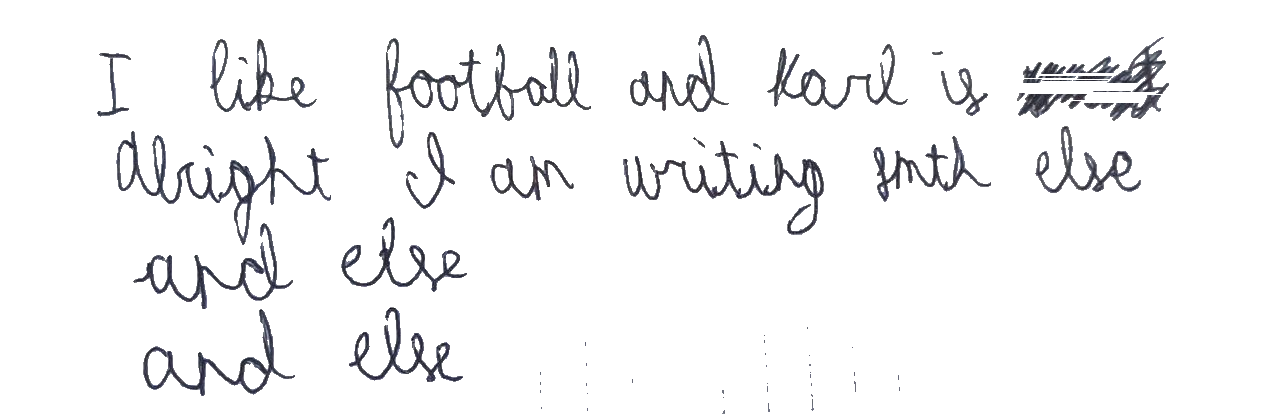 I like football and Karl is
Alright I am writing smth else
and else
and else